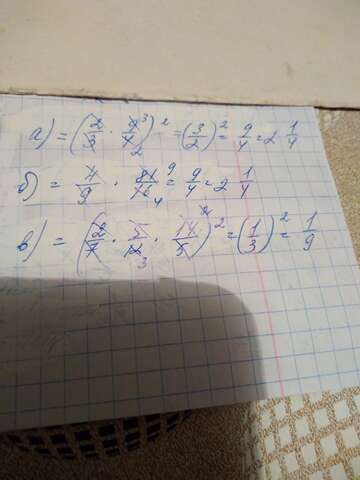 а) = (2/3 · 9/4)² = (3/2)² = 9/4 = 2 1/4
б) = 4/9 · 81/16 = 9/4 = 2 1/4
в) = (2/7 · 5/12 · 14/5)² = (1/3)² = 1/9